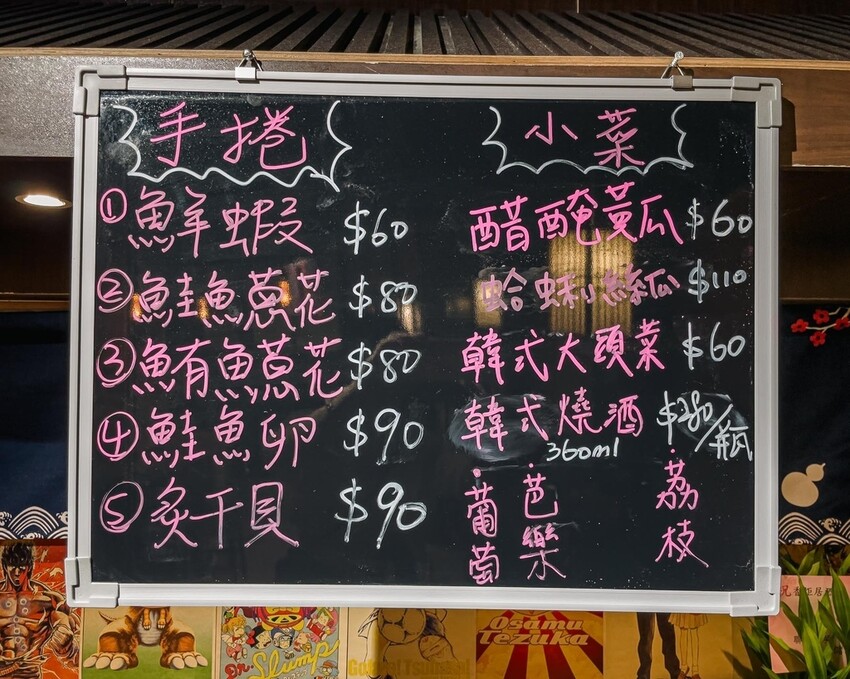 手捲
①鮮蝦 $60
②鮭魚蔥花 $80
③鮪魚蔥花 $80
④鮭魚卵 $90
⑤炙干貝 $90
小菜
醋醃黃瓜 $60
蛤蜊絲瓜 $110
韓式大頭菜 $60
韓式燒酒 /瓶
360ml
·葡萄
·芭樂
·荔枝
Dr. Slump
Osamu Tezuka